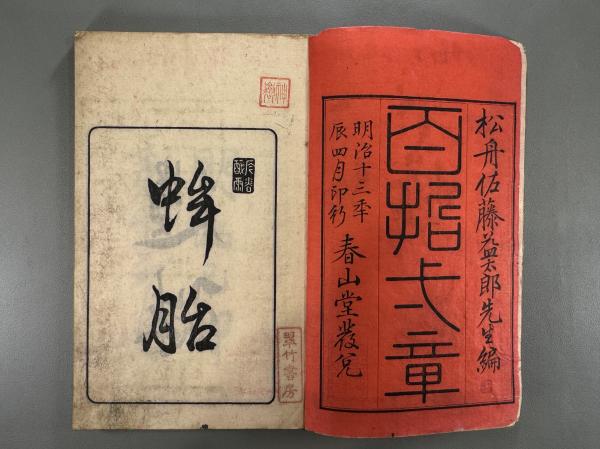 松舟佐藤益太郎先生編
百 章
明治十三秊
辰四月印行
春山堂發兌
蚌
胎
翠竹書房